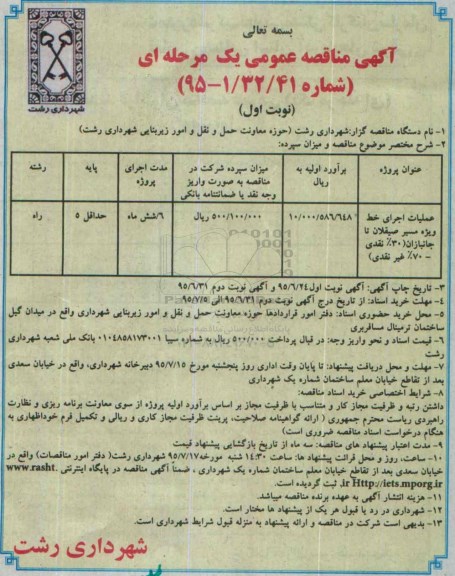 بسمه تعالی
آگهی مناقصه عمومی یک مرحله ای
(شماره ۹۵-۱/۳۲/۴۱)
(نوبت اول)
شهرداری رشت
۱- نام دستگاه مناقصه گزار:شهرداری رشت (حوزه معاونت حمل و نقل و امور زیربنایی شهرداری رشت)
۲- شرح مختصر موضوع مناقصه و میزان سپرده:
عنوان پروژه
برآورد اولیه به ریال
میزان سپرده شرکت در مناقصه به صورت واریز وجه نقد یا ضمانتنامه بانکی
مدت اجرای پروژه
پایه
رشته
عملیات اجرای خط ویژه مسیر صیقلان تا جانبازان(۳۰٪ نقدی - ۷۰٪ غیر نقدی)
۱۰/۰۰۰/۵۸۶/۶۴۸
۵۰۰/۱۰۰/۰۰۰ ریال
۶/شش ماه
حداقل ۵
راه
۳- تاریخ چاپ آگهی: آگهی نوبت اول۹۵/۶/۲۴ و آگهی نوبت دوم ۹۵/۶/۳۱
۴- مهلت خرید اسناد: از تاریخ درج آگهی نوبت دوم ۹۵/۶/۳۱ الی ۹۵/۷/۵
۵- محل خرید حضوری اسناد: دفتر امور قراردادها حوزه معاونت حمل و نقل و امور زیربنایی شهرداری واقع در میدان گیل
ساختمان ترمینال مسافربری
۶- قیمت اسناد و نحو واریز وجه: در قبال پرداخت ۵۰۰/۰۰۰ ریال به شماره سیبا ۰۱۰۴۸۵۸۱۷۳۰۰۱ بانک ملی شعبه شهرداری
رشت
۷- مهلت و محل دریافت پیشنهاد: تا پایان وقت اداری روز پنجشنبه مورخ ۹۵/۷/۱۵ دبیرخانه شهرداری، واقع در خیابان سعدی
بعد از تقاطع خیابان معلم ساختمان شماره یک شهرداری
۸- شرایط اختصاصی خرید اسناد مناقصه:
داشتن رتبه و ظرفیت مجاز کار و متناسب با ظرفیت مجاز بر اساس برآورد اولیه پروژه از سوی معاونت برنامه ریزی و نظارت
راهبردی ریاست محترم جمهوری ( ارائه گواهینامه صلاحیت، پرینت ظرفیت مجاز کاری و ریالی و تکمیل فرم خوداظهاری به
هنگام درخواست اسناد مناقصه ضروری است)
۹- مدت اعتبار پیشنهاد های مناقصه: سه ماه از تاریخ بازگشایی پیشنهاد قیمت
۱۰-ساعت، روز و محل قرائت پیشنهاد ها: ساعت ۱۴:۳۰ شنبه مورخه۹۵/۷/۱۷ شهرداری رشت( دفتر امور مناقصات) واقع در
خیابان سعدی بعد از تقاطع خیابان معلم ساختمان شماره یک شهرداری ، ضمناً آگهی مناقصه در پایگاه اینترنتی www.rasht.
ir Http://iets.mporg.ir, ثبت گردیده است.
۱۱- هزینه انتشار آگهی به عهده برنده مناقصه میباشد.
۱۲- شهرداری در رد یا قبول هر یک از پیشنهاد ها مختار است.
۱۳- بدیهی است شرکت در مناقصه و ارائه پیشنهاد به منزله قبول شرایط شهرداری است.
شهرداری رشت